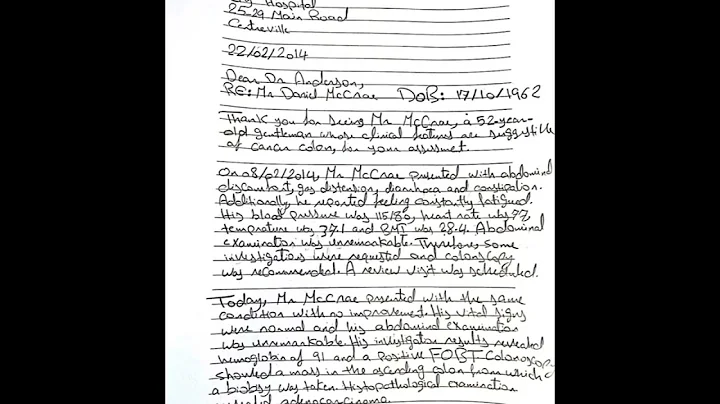 Hospital
25-29 Main Road
Centreville
22/02/2014
Dear Dr Anderson,
RE: Mr Daniel McCrae DOB: 17/10/1962
Thank you for seeing Mr McCrae, a 52-year-
old gentleman whose clinical features are suggestive
of cancer colon, for your assessment.
On 08/02/2014, Mr McCrae presented with abdominal
discomfort, gas distension, diarrhoea and constipation.
Additionally, he reported feeling constantly fatigued.
His blood pressure was 115/80, heart rate was 72,
temperature was 37.1 and BMI was 28.4. Abdominal
examination was unremarkable. Therefore, some
investigations were requested and colonoscopy
was recommended. A review visit was scheduled.
Today, Mr McCrae presented with the same
condition with no improvement. His vital signs
were normal and his abdominal examination
was unremarkable. His investigation results revealed
hemoglobin of 91 and a positive FOBT. Colonoscopy
showed a mass in the ascending colon from which
a biobsy was taken. Histopathological examination
revealed adenocarcinoma.